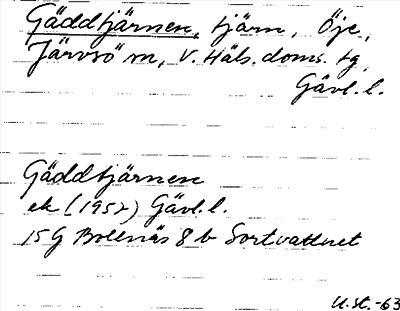 Gäddtjärnen, tjärn, Öje,
Järvsö sn, V. Häls. doms. tg,
Gävl. l.
Gäddtjärnen
ek (1952) Gävl. l.
15G Bollnäs 8 b Sortvattnet
U.st.-63